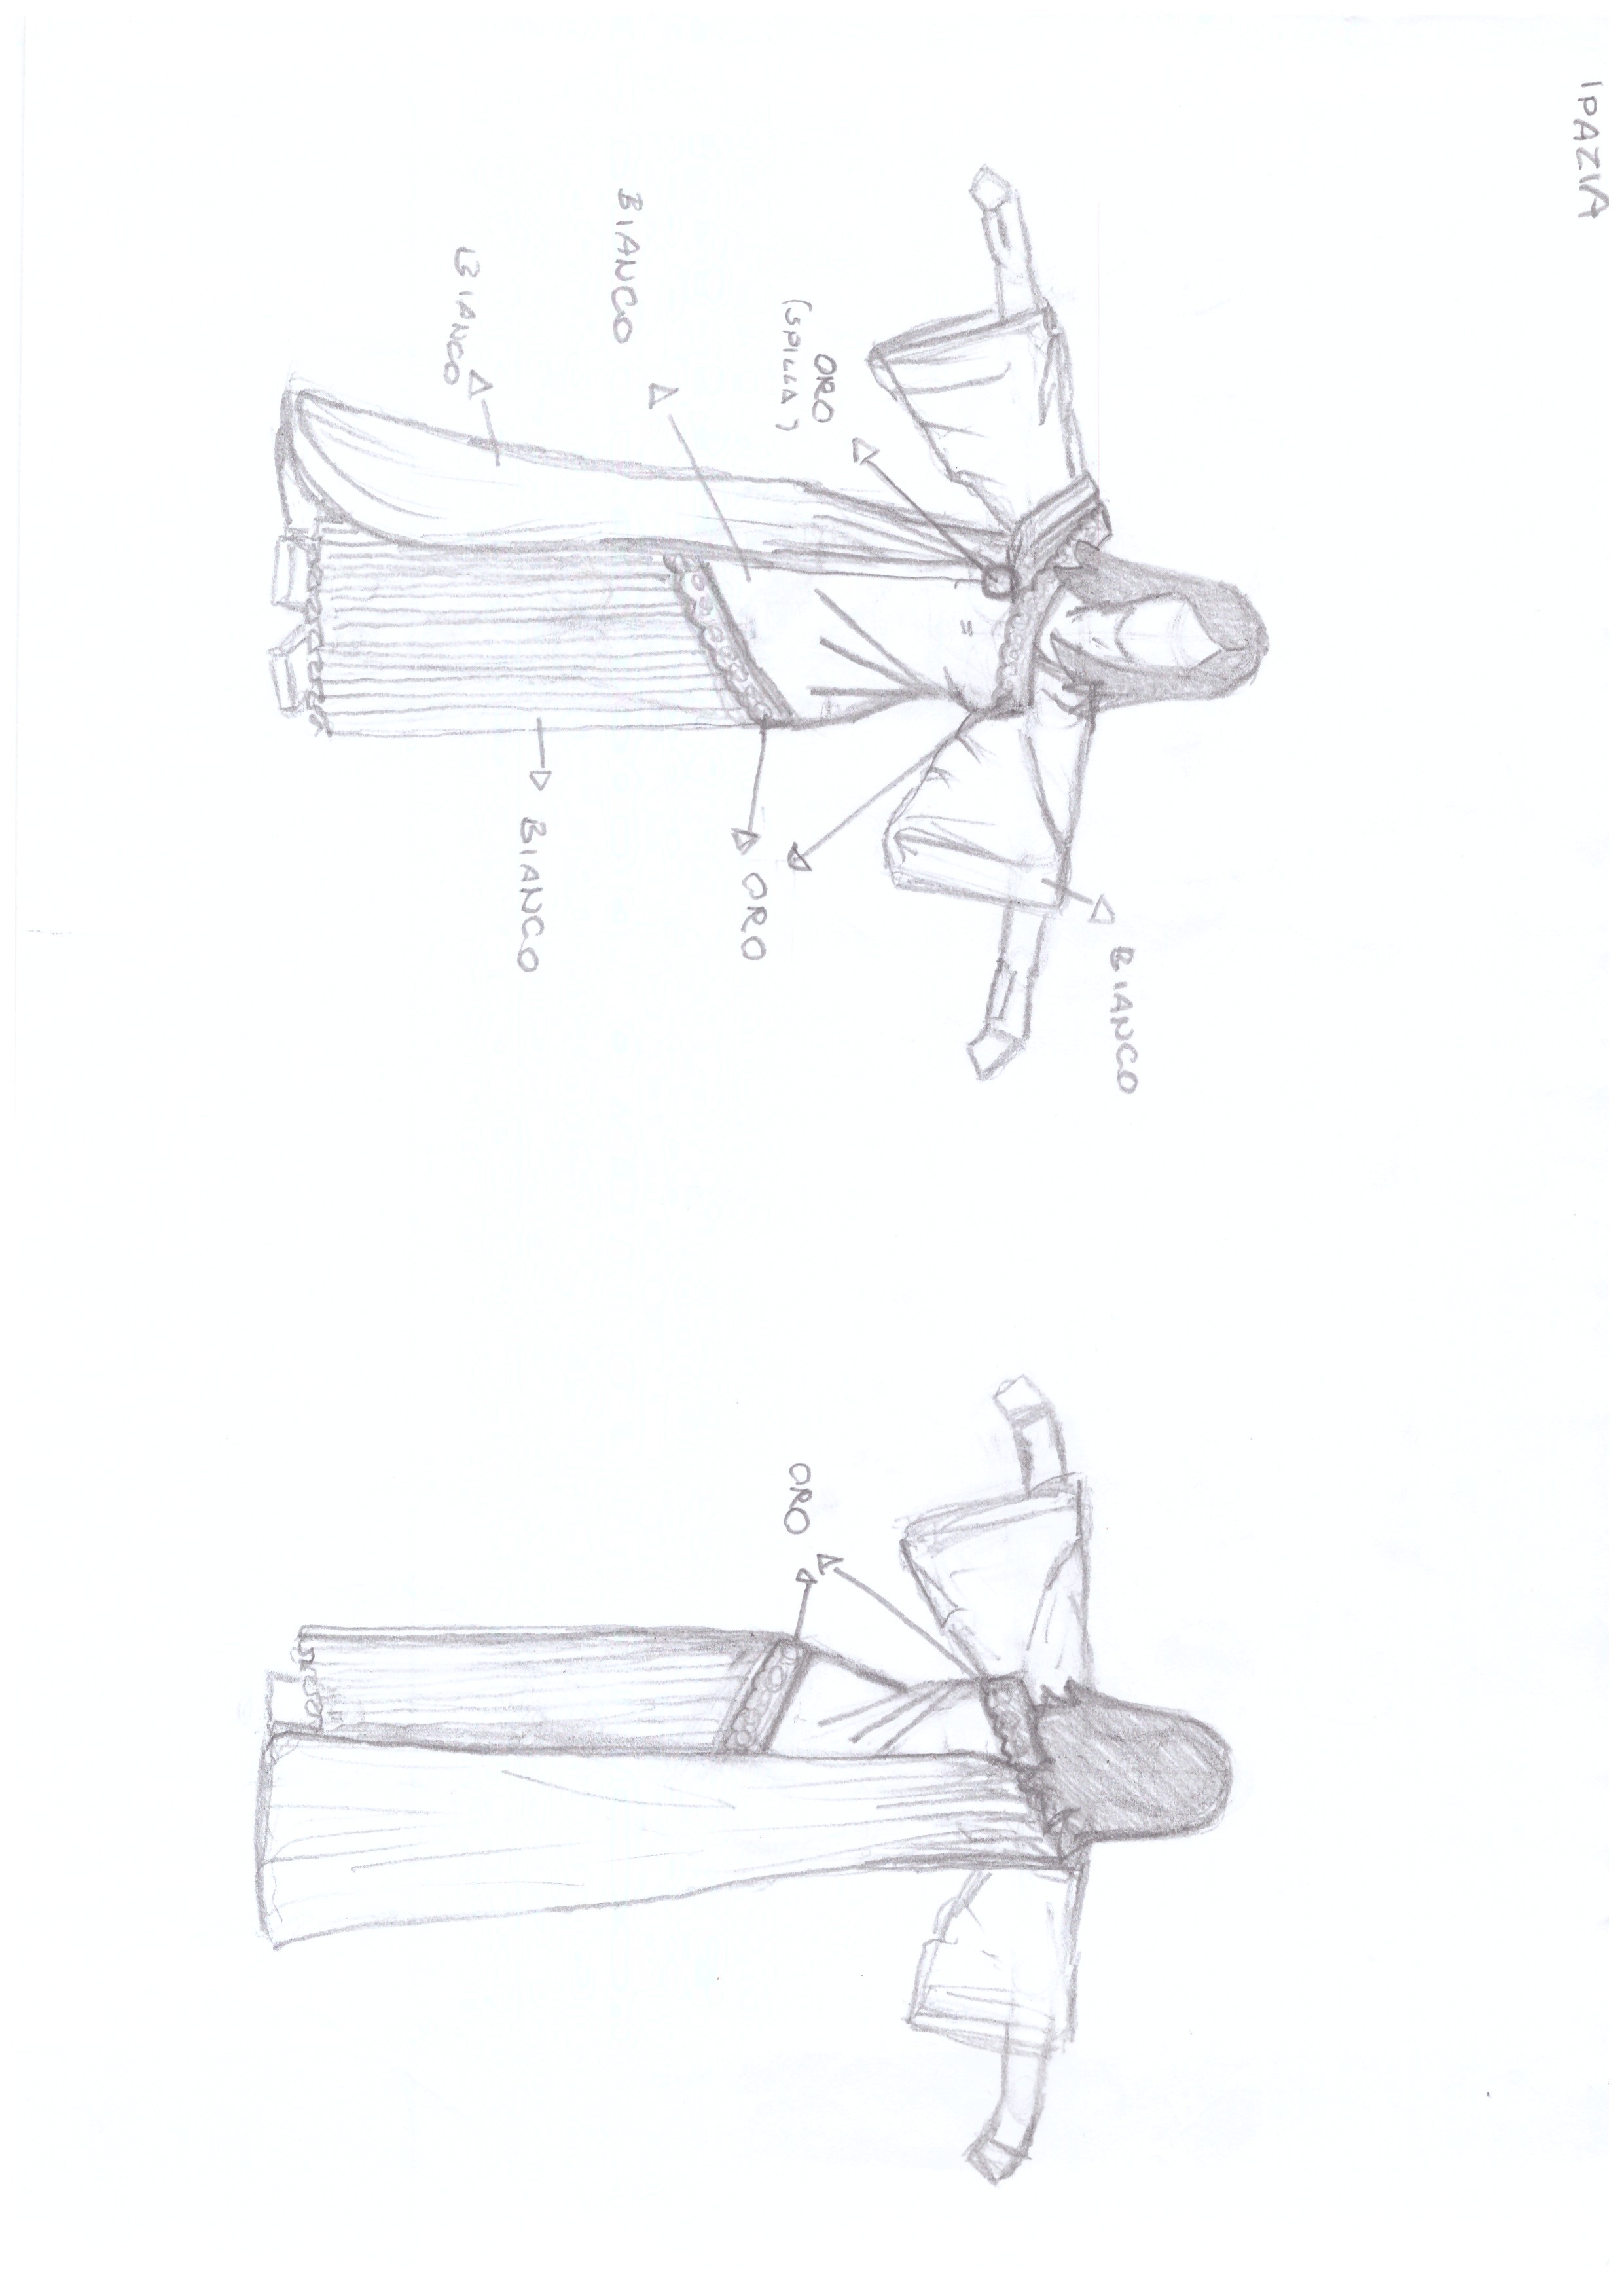 IPAZIA
BIANCO
ORO
(SPILLA)
ORO
BIANCO
BIANCO
BIANCO
ORO